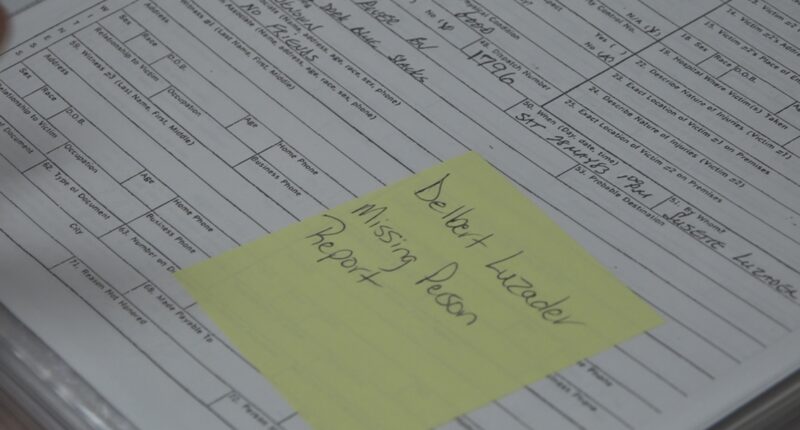 N/A (X)
My Control No.
Yes ( )
No (X)
No (X)
Physical Condition
Good
48. Dispatch Number
1796
50. When (Day, date, time)
SAT 28 MAY 83
51. By Whom?
53. Probable Destination
18. Sex
Race
D.O.B.
19. Hospital Where Victim(s) Taken
22. Describe Nature of Injuries (Victim #1)
23. Exact Location of Victim #1 on Premises
24. Describe Nature of Injuries (Victim #2)
25. Exact Location of Victim #2 on Premises
Witness #1 (Last Name, First, Middle)
Address
Sex
Race
D.O.B.
Relationship to Victim
NO FRIENDS
Associate (Name, address, age, race, sex, phone)
59. Witness #3 (Last Name, First, Middle)
Address
Sex
Race
D.O.B.
Relationship to Victim
Occupation
Age
Home Phone
Business Phone
Occupation
Age
Home Phone
Business Phone
62. Type of Document
63. Number on
City
68. Made Payable To
71. Reason Not Honored
Delbert Luzader
Missing Person
Report
Business Phone